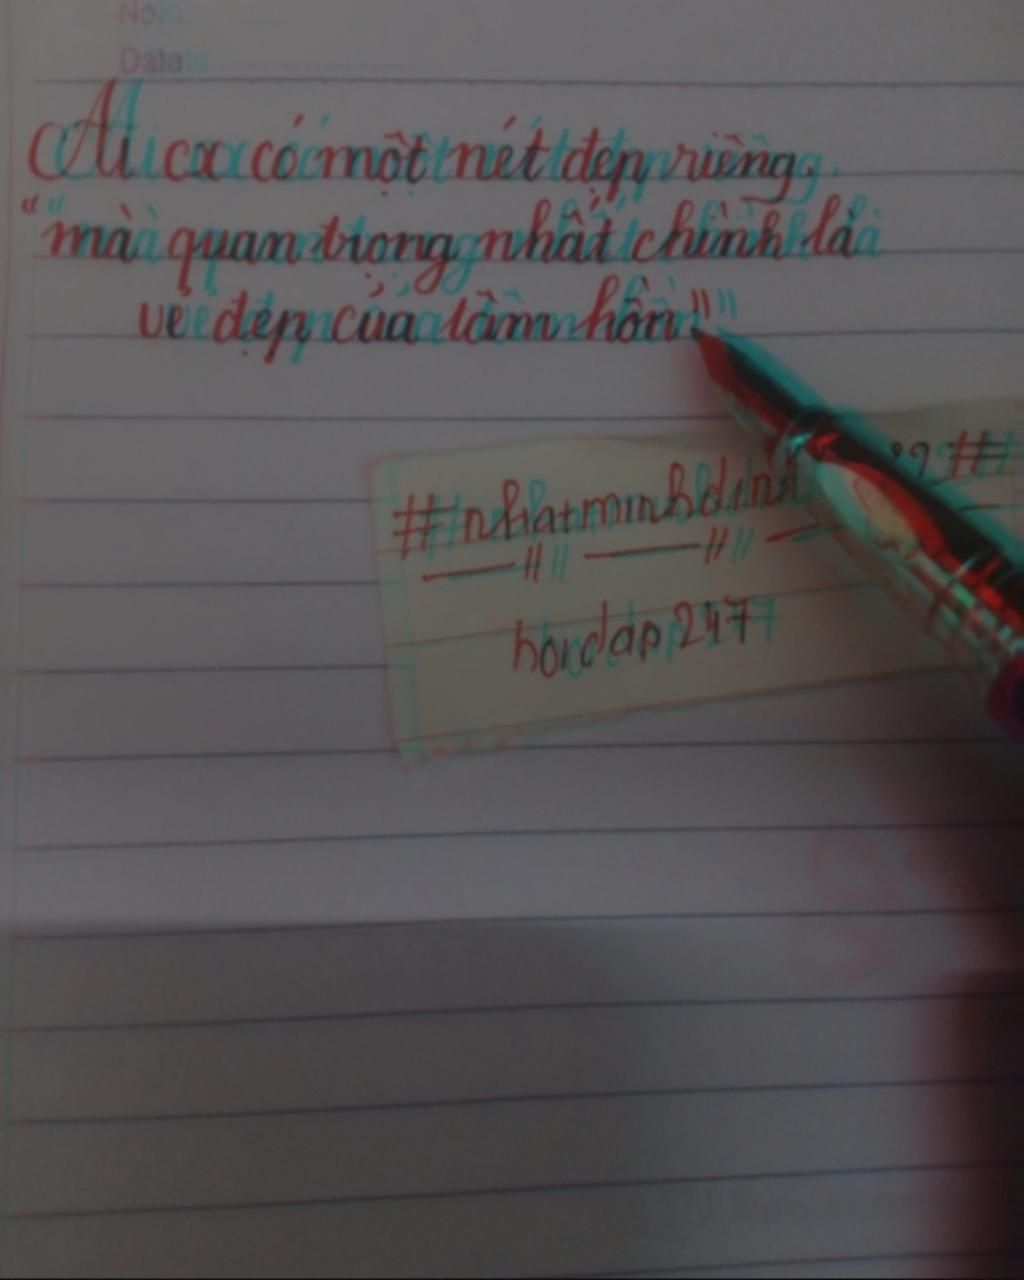 No:
Date
Ai cx có một nét đẹp riêng.
"mà quan trọng nhất chính là
vẻ đẹp của tâm hồn."
hoidap247